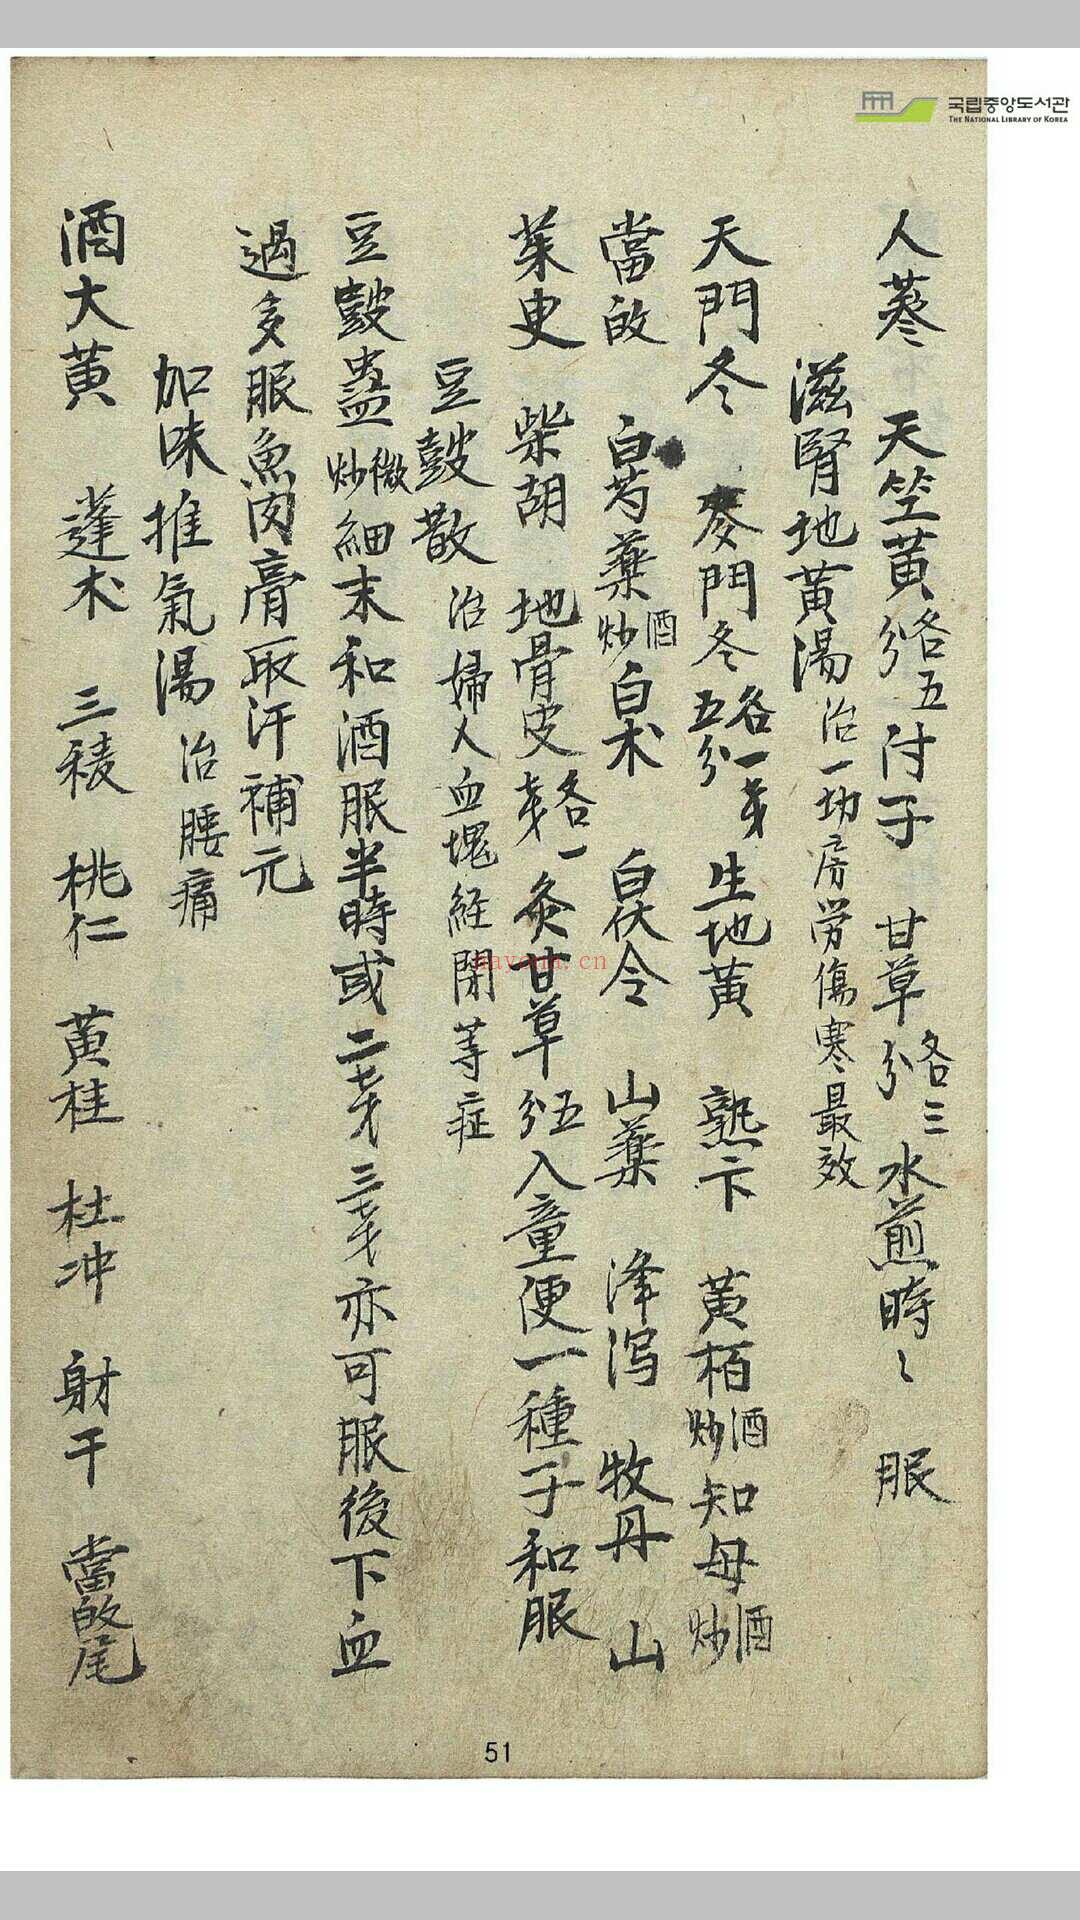 국립중앙도서관
THE NATIONAL LIBRARY OF KOREA
人蔘 天竺黃各五分 付子 甘草各三分 水煎時々服
滋腎地黃湯 治一切房労傷寒最效
天門冬 麥門冬各一戔五分 生地黃 熟卞 黃栢酒炒 知母酒炒
當皈 白芍藥酒炒 白朮 白伏令 山藥 泽泻 牧丹 山
茱吏 柴胡 地骨皮各一戔 灸甘草五分 入童便一種子和服
豆豉散 治婦人血塊経閉等症
豆豉蠱微炒 細末和酒服半時或二戔三戔亦可服後下血
過多服魚肉膏取汗補元
加味推氣湯 治腰痛
酒大黃 蓬朮 三稜 桃仁 黃桂 杜冲 射干 當皈尾
hayona.cn
51